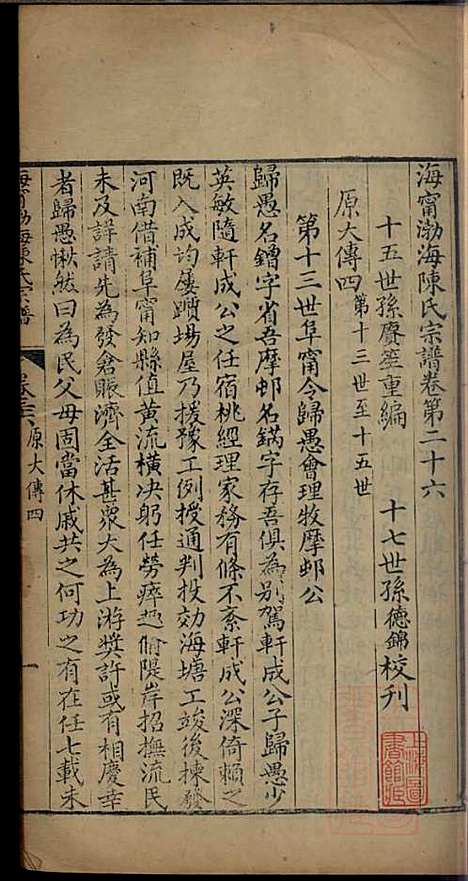 海甯渤海陳氏宗譜卷第二十六
十五世孫賡笙重編　十七世孫德錦校刊
原大傳四　第十三世至十五世
第十三世阜甯令歸愚會理牧摩邨公
歸愚名鏳字省吾摩邨名鎬字存吾俱為別駕軒成公子歸愚少
英敏隨軒成公之任宿桃經理家務有條不紊軒成公深倚賴之
既入成均屢躓場屋乃援豫工例授通判投効海塘工竣後揀發
河南借補阜甯知縣值黃流橫决躬任勞瘁廵偷隄岸招撫流民
未及詳請先為發倉賑濟全活甚衆大為上游奬許或有相慶幸
者歸愚愀然曰為民父母固當休戚共之何功之有在任七載未
海甯渤海陳氏宗譜
卷二十六　原大傳四
一
上海圖書館藏